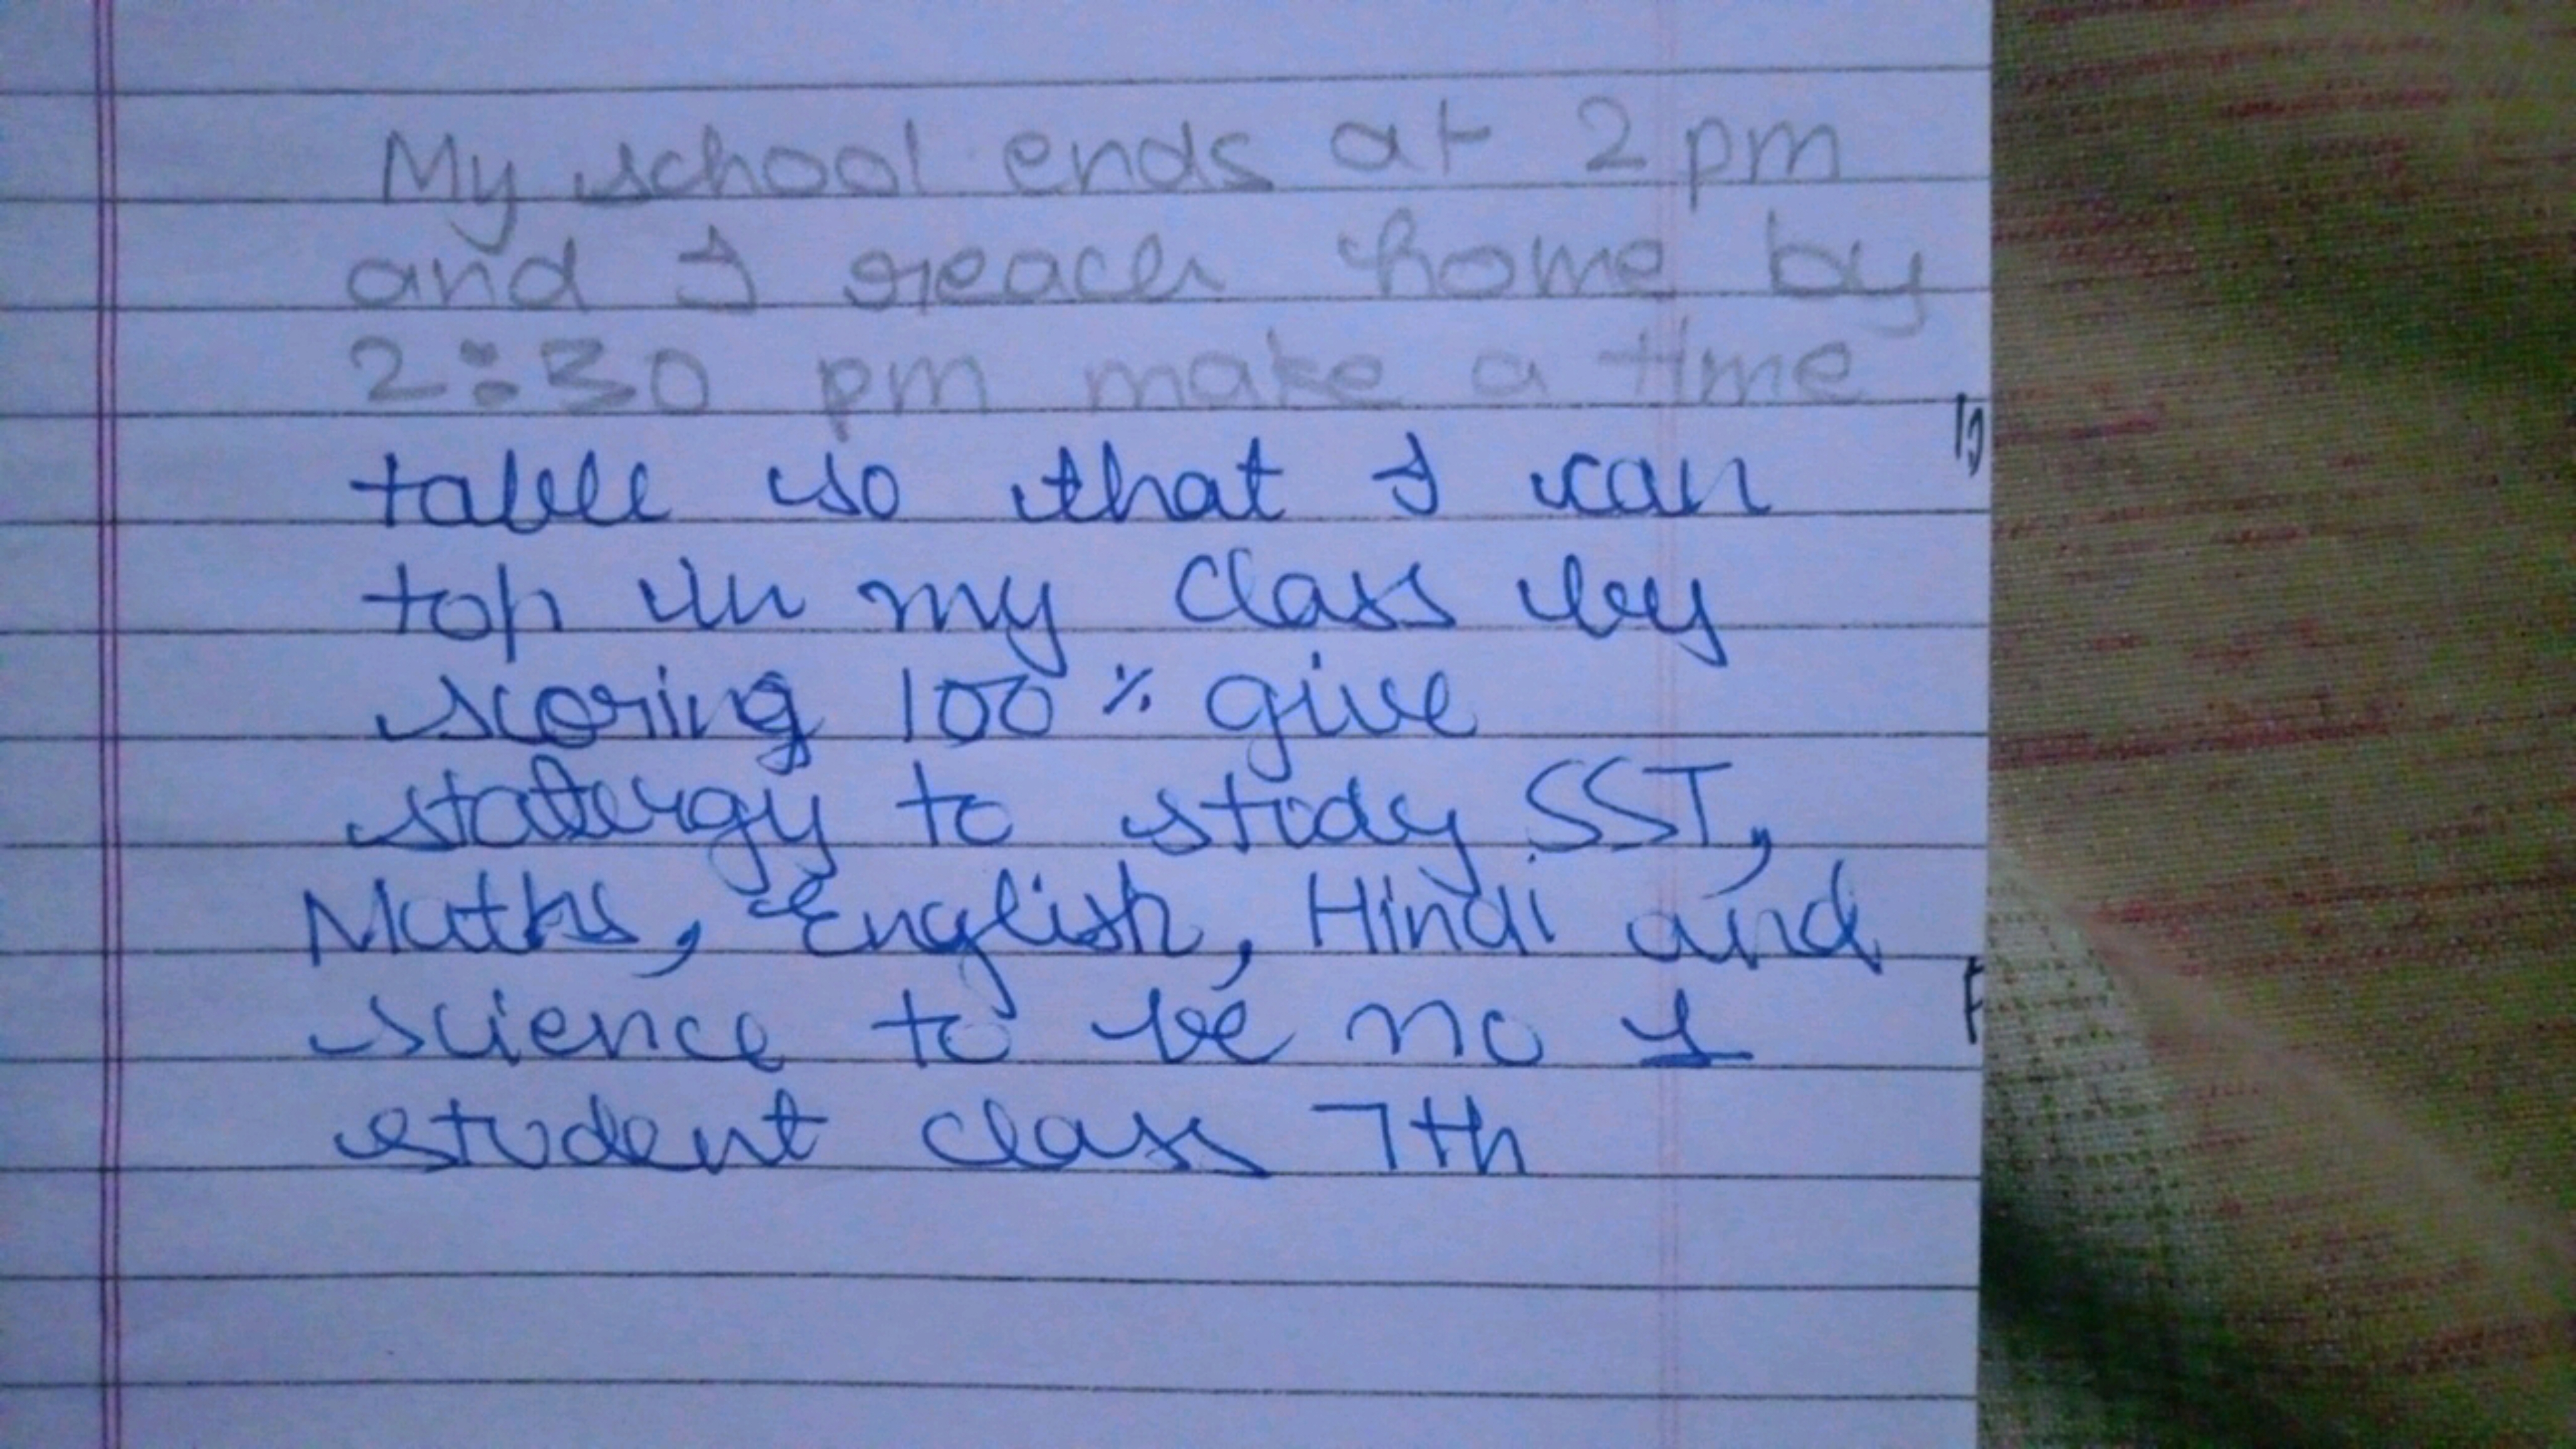 My school ends at 2 pm
and I reach home by
2:30 pm make a time
table so that I can
top in my class by
scoring 100 % give
statergy to study SST,
Maths, English, Hindi and
science to be no 1
student class 7th